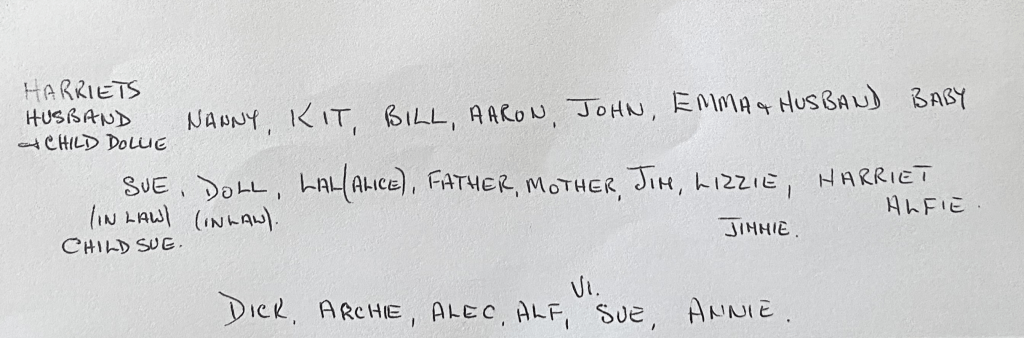 HARRIETS
HUSBAND
+ CHILD DOLLIE
NANNY, KIT, BILL, AARON, JOHN, EMMA + HUSBAND BABY
SUE, DOLL, LAL (ALICE), FATHER, MOTHER, JIM, LIZZIE, HARRIET
(IN LAW) (IN LAW).
ALFIE.
CHILD SUE.
JIMMIE.
VI.
DICK, ARCHIE, ALEC, ALF, SUE, ANNIE.